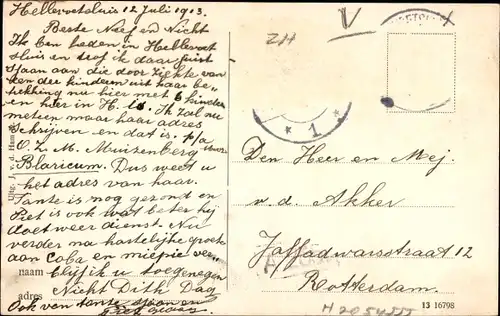 Hellevoetsluis 12 Juli 1913.
Beste Neef en Nicht
Ik ben heden in Hellevoet
sluis en trof ik daar juist
Sjaan aan die door ziekte van
een der kinderen uit haar be„
trekking nu hier met 6 kinder
en hier in H. is. Ik zal nu
meteen maar haar adres
Schrijven en dat is. p/a
O. Z. M. Muizenberg
Blaricum. Dus weet u
het adres van haar.
Tante is nog gezond en
Piet is ook wat beter hij
doet weer dienst. Nu
verder na hartelijke groet
aan Coba en miepie ver„
naam blijf ik u toegenegen
Nicht Dith Dag
adres Ook van tante Sjaan en
Piet gedaan.
Uitg. J. v. d. Ham
ZH
V
* 1 *
Den Heer en Mej.
v. d. Akker
Jaffadwarsstraat 12
Rotterdam.
H2054555
13 16798